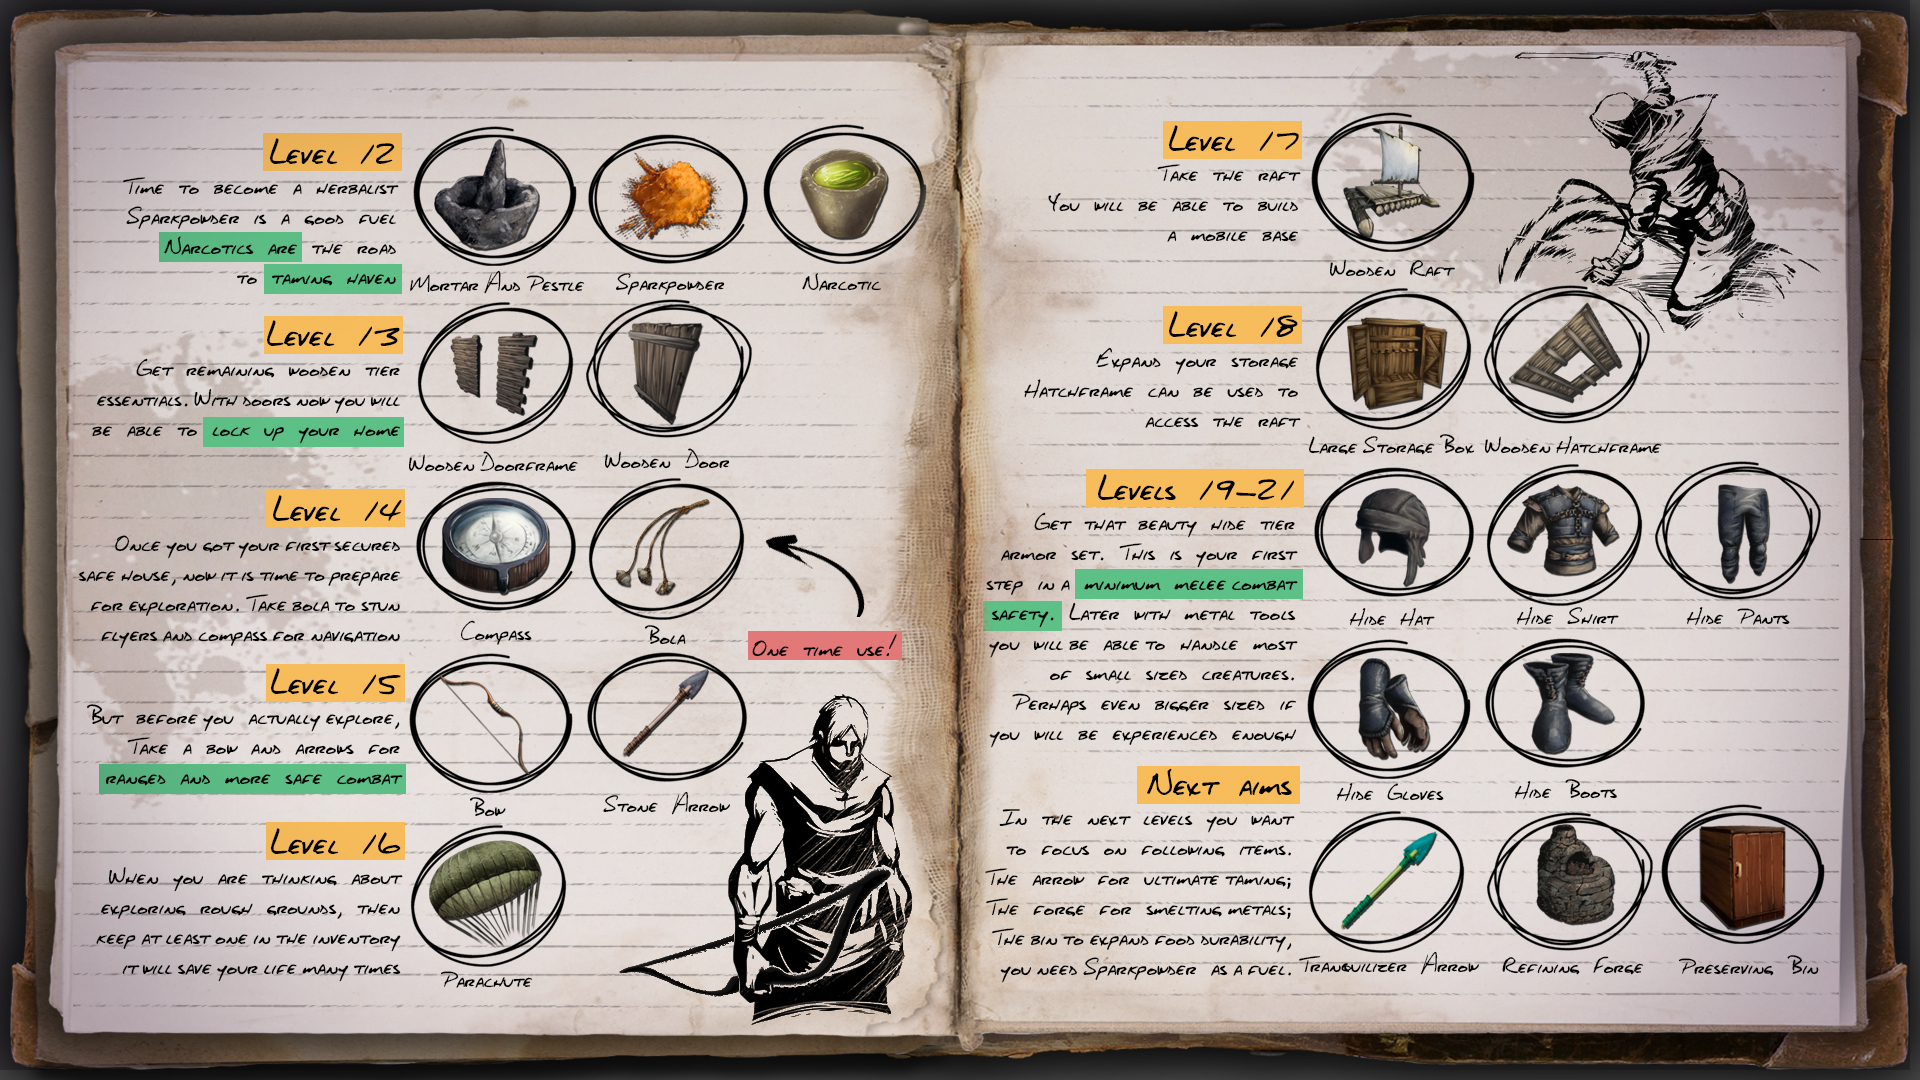 Level 12
Time to become a herbalist
Sparkpowder is a good fuel
Narcotics are the road
to taming haven
Mortar And Pestle
Sparkpowder
Narcotic
Level 13
Get remaining wooden tier
essentials. With doors now you will
be able to lock up your home
Wooden Doorframe
Wooden Door
Level 14
Once you got your first secured
safe house, now it is time to prepare
for exploration. Take bola to stun
flyers and compass for navigation
Compass
Bola
One time use!
Level 15
But before you actually explore,
Take a bow and arrows for
ranged and more safe combat
Bow
Stone Arrow
Level 16
When you are thinking about
exploring rough grounds, then
keep at least one in the inventory
it will save your life many times
Parachute
Level 17
Take the raft
You will be able to build
a mobile base
Wooden Raft
Level 18
Expand your storage
Hatchframe can be used to
access the raft
Large Storage Box
Wooden Hatchframe
Levels 19-21
Get that beauty hide tier
armor set. This is your first
step in a minimum melee combat
safety. Later with metal tools
you will be able to handle most
of small sized creatures.
Perhaps even bigger sized if
you will be experienced enough
Hide Hat
Hide Shirt
Hide Pants
Hide Gloves
Hide Boots
Next aims
In the next levels you want
to focus on following items.
The arrow for ultimate taming;
The forge for smelting metals;
The bin to expand food durability,
you need Sparkpowder as a fuel.
Tranquilizer Arrow
Refining Forge
Preserving Bin